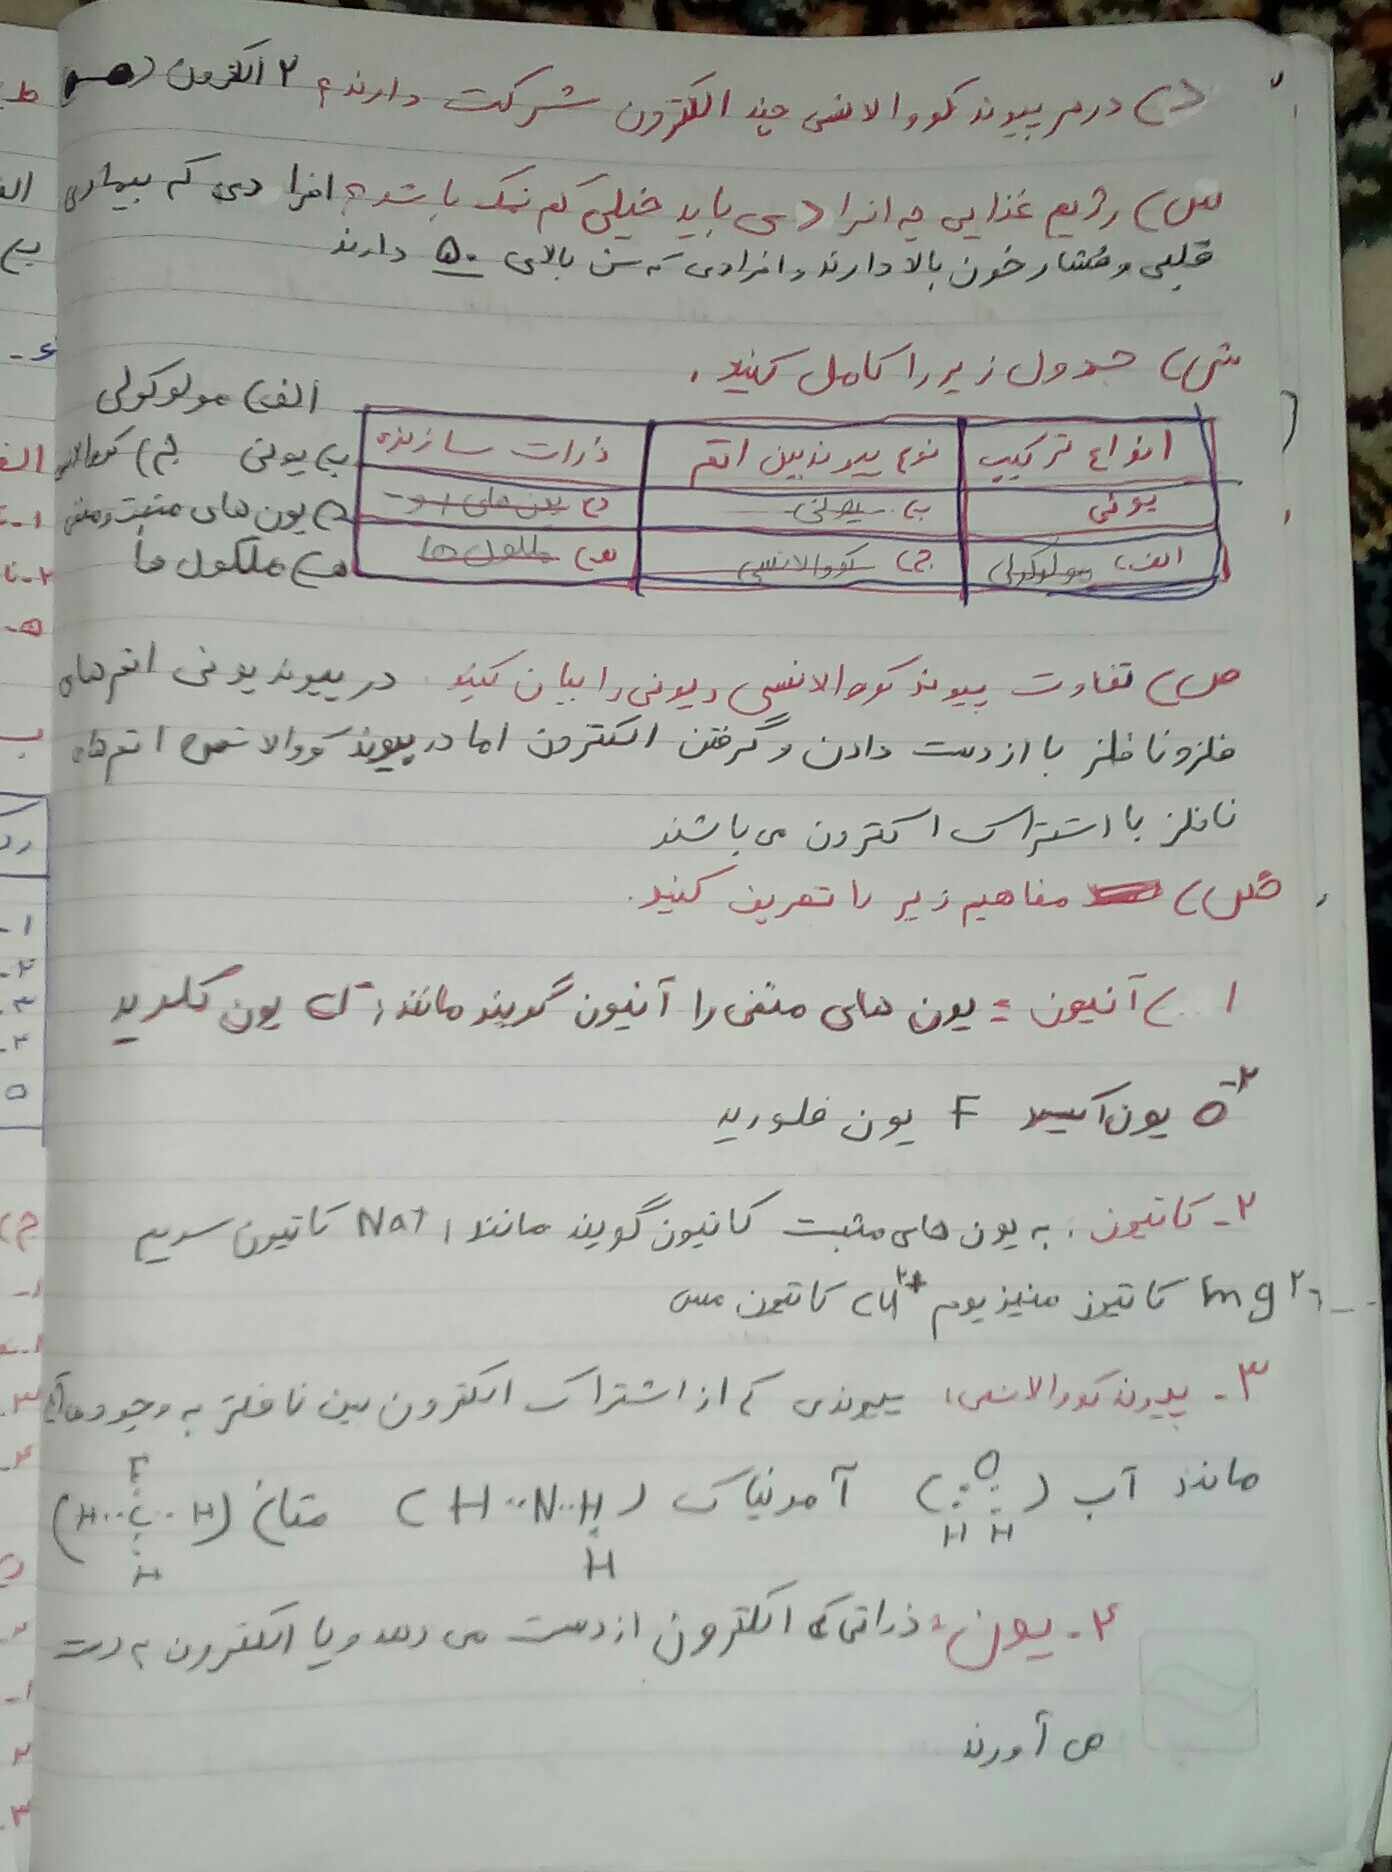 در هر پیوند کووالانسی چند الکترون شرکت دارند؟ ۲ الکترون
س) رژیم غذایی چه افرادی باید خیلی کم نمک باشد؟ افرادی که بیماری
قلبی و فشار خون بالا دارند و افرادی که سن بالای ۵۰ دارند
ش) جدول زیر را کامل کنید.
الف) مولوکولی
ب) یونی ج)
د) یون های مثبت و منفی
ه) ملکول ها
انواع ترکیب نوع پیوند بین اتم ذرات سازنده
یونی ب) یونی د) یون های + و -
الف) مولوکولی ج) کووالانسی ه) ملکول ها
ص) تفاوت پیوند کووالانسی و یونی را بیان کنید. در پیوند یونی اتم های
فلز و نا فلز با از دست دادن و گرفتن الکترون اما در پیوند کووالانسی اتم های
نافلز با اشتراک اکترون می باشند
ض) مفاهیم زیر را تعریف کنید.
۱) آنیون = یون های منفی را آنیون گویند مانند: Cl⁻ یون کلرید
O⁻² یون اکسید F یون فلورید
۲- کاتیون: به یون های مثبت کاتیون گویند مانند: Na+ کاتیون سدیم
mg²+ کاتیون منیزیوم Cu²+ کاتیون مس
۳- پیوند کووالانسی: پیوندی که از اشتراک الکترون بین نا فلز به وجود می آید
مانند آب ( O H H ) آمونیاک ( H··N··H H ) متان ( H··C··H H )
۴- یون: ذراتی که الکترون از دست می دهد و یا الکترون به دست
می آورند